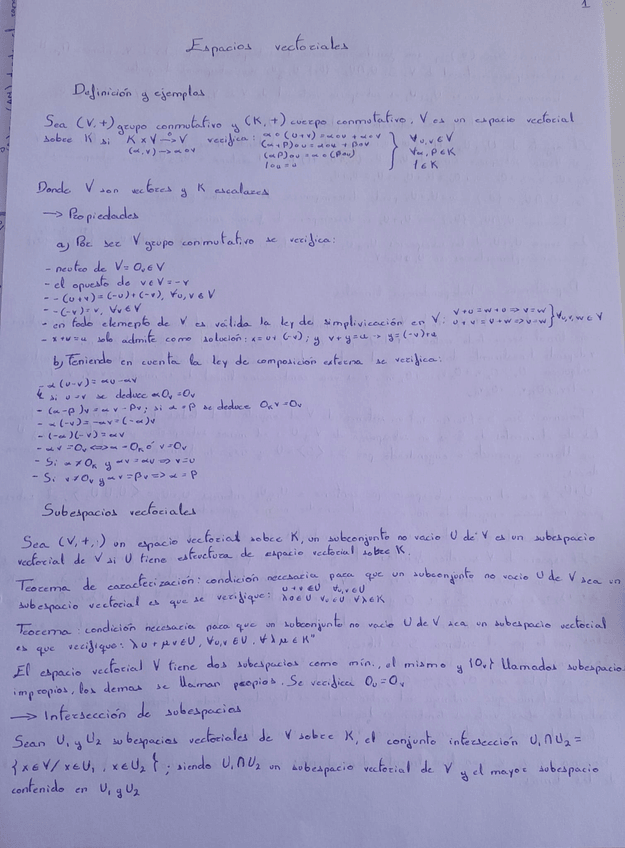 1
Espacios vectoriales
Definición y ejemplos
Sea (V,+) grupo conmutativo y (K,+) cuerpo conmutativo, V es un espacio vectorial
sobre K si K x V → V verifica: α∘(u+v) = α∘u + α∘v } ∀u,v ∈ V
(α,v) → α∘v (α+β)∘u = α∘u + β∘u ∀α,β ∈ K
(αβ)∘u = α∘(β∘u) 1 ∈ K
1∘u = u
Donde V son vectores y K escalares
→ Propiedades
a) Por ser V grupo conmutativo se verifica:
- neutro de V = 0ᵥ ∈ V
- el opuesto de v ∈ V = -v
- -(u+v) = (-u)+(-v), ∀u,v ∈ V
- -(-v) = v, ∀v ∈ V
- en todo elemento de V es válida la ley de simplivicación en V: v+u=w+u ⇒ v=w } ∀u,v,w ∈ V
u+v=u+w ⇒ v=w
- x+u=u solo admite como solución: x=u+(-v); y v+y=u → y=(-v)+u
b) Teniendo en cuenta la ley de composición externa se verifica:
- α(u-v) = αu-αv
↳ si u=v se deduce α0ᵥ = 0ᵥ
- (α-β)v = αv-βv; si α=β se deduce 0ₖv = 0ᵥ
- α(-v) = -αv = (-α)v
- (-α)(-v) = αv
- αv = 0ᵥ ⟺ α = 0ₖ ó v = 0ᵥ
- Si α≠0ₖ y αv = αu ⇒ v=u
- Si v≠0ᵥ y αv = βv => α = β
Subespacios vectoriales
Sea (V,+,·) un espacio vectorial sobre K, un subconjunto no vacio U de V es un subespacio
vectorial de V si U tiene estructura de espacio vectorial sobre K.
Teorema de caracterización: condición necesaria para que un subconjunto no vacio U de V sea un
subespacio vectorial es que se verifique: u+v ∈ U ∀u,v ∈ U
λv ∈ U ∀v ∈ U ∀λ ∈ K
Teorema: condición necesaria para que un subconjunto no vacio U de V sea un subespacio vectorial
es que verifique: λu+μv ∈ U, ∀u,v ∈ U, ∀λ,μ ∈ K"
El espacio vectorial V tiene dos subespacios como min., el mismo y {0ᵥ} llamados subespacios
impropios, los demas se llaman propios. Se verifica 0ᵤ = 0ᵥ
→ Intersección de subespacios
Sean U₁ y U₂ subespacios vectoriales de V sobre K, el conjunto intersección U₁∩U₂ =
{x ∈ V / x ∈ U₁, x ∈ U₂}; siendo U₁∩U₂ un subespacio vectorial de V y el mayor subespacio
contenido en U₁ y U₂